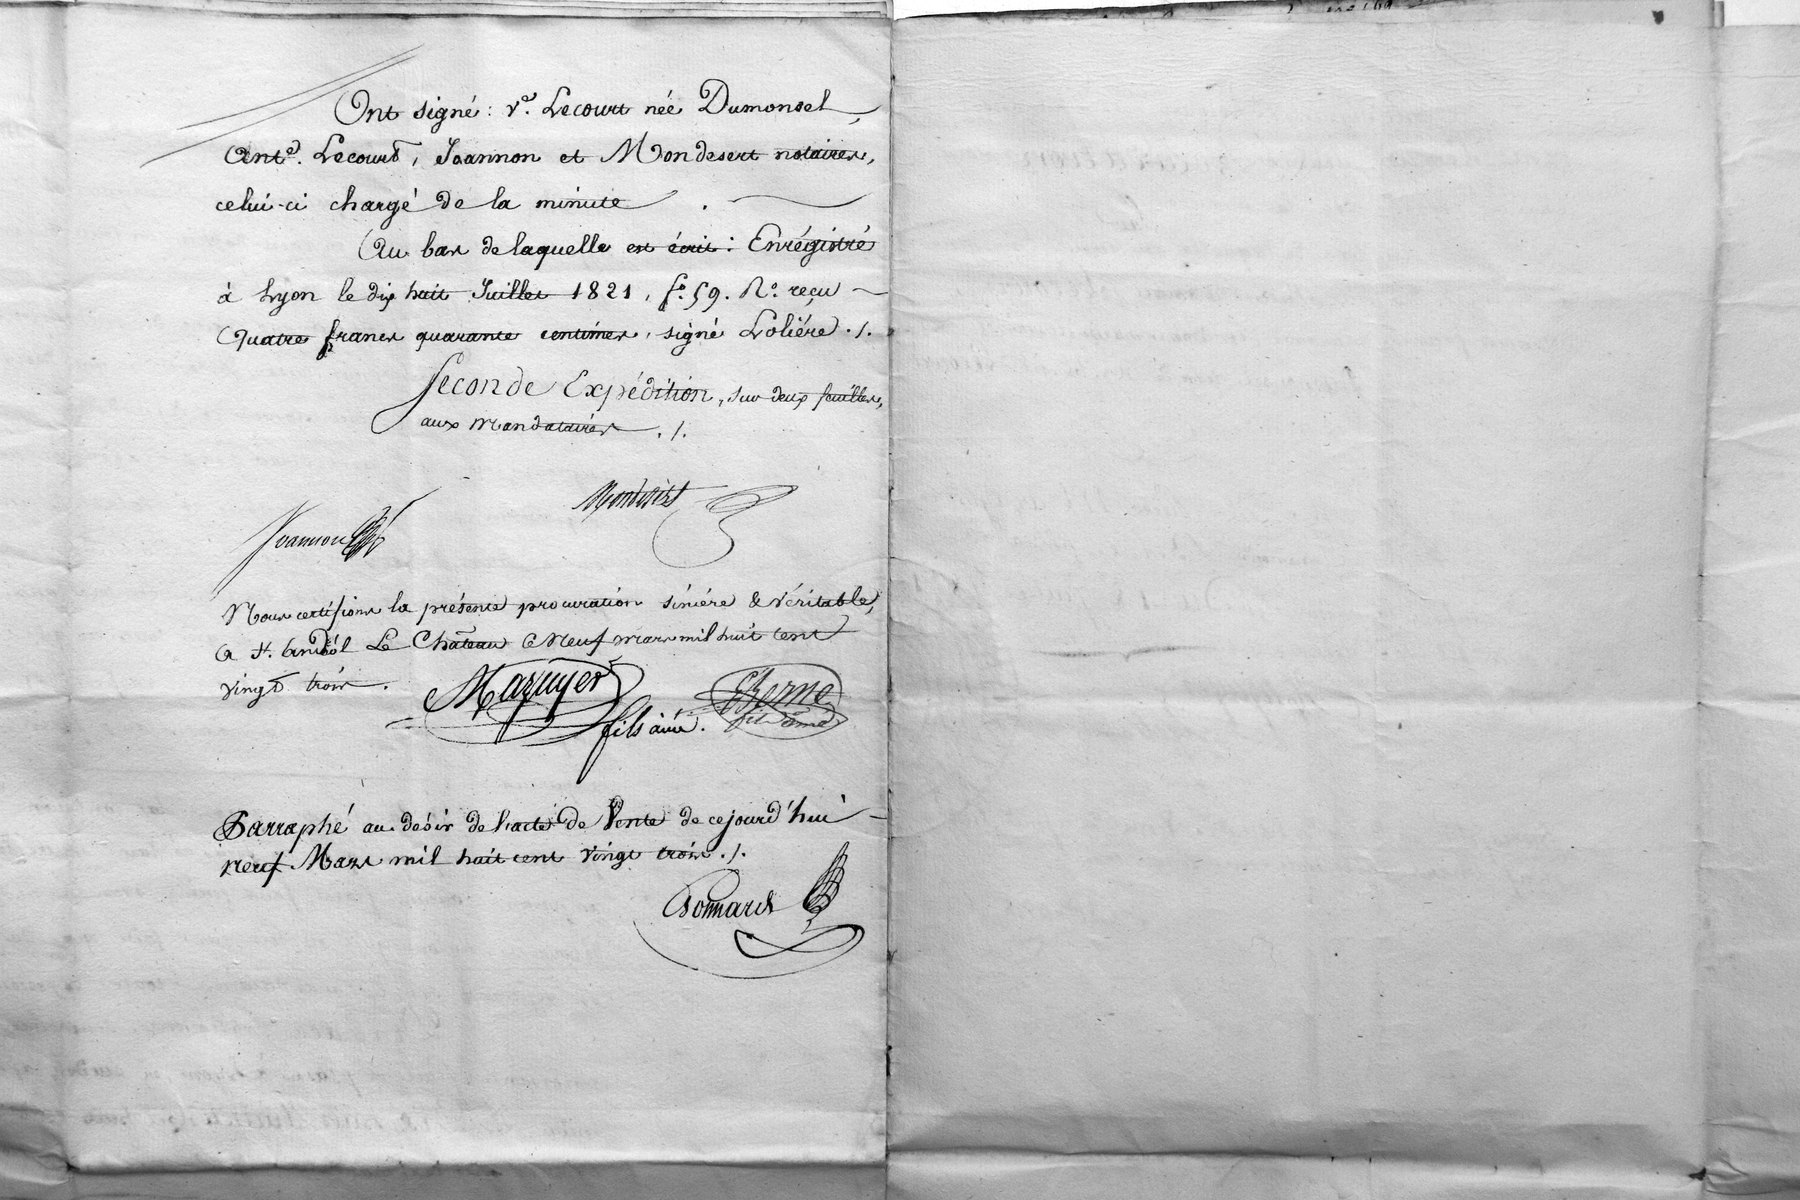 Ont signé : Ve. Lecourt née Dumontel,
Ante. Lecourt, Joannon et Mondesert notaires,
celui-ci chargé de la minute .
Au bas de laquelle est écrit : Enrégistré
à Lyon le dix huit Juillet 1821, fo. 59. Ro. reçu
Quatre francs quarante centimes, signé Lolière ./.
Seconde Expédition, sur deux feuilles,
aux Mandataires ./.
Mondésert
Joannon
Nous certifions la présente procuration sincère & véritable,
A St. Andéol Le Château Ce Neuf mars mil huit cent
vingt trois .
Mazuyer
fils ainé.
Berne
fils ainé
Parraphé au désir de l'acte de Vente de cejourd'hui
neuf Mars mil huit cent vingt trois ./.
Bonnard